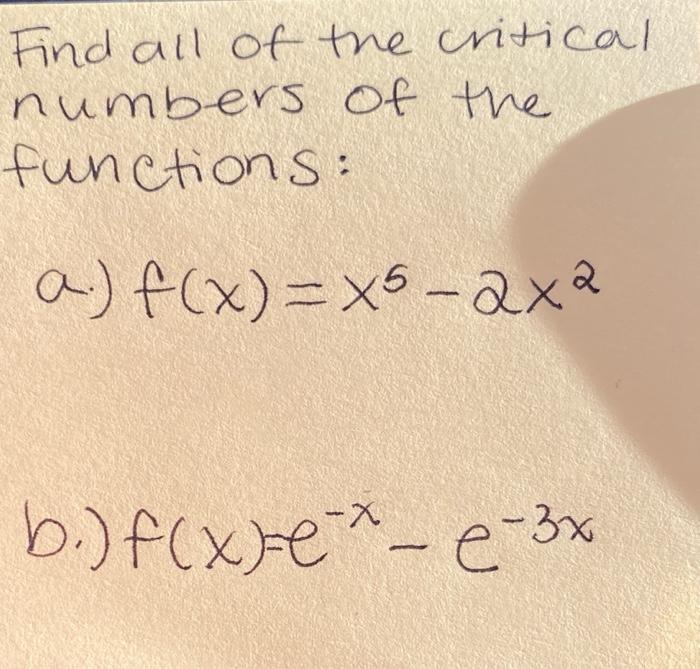 Find all of the critical
numbers of the
functions:
a.) f(x) = x⁵ - 2x²
b.) f(x)=e⁻ˣ - e⁻³ˣ